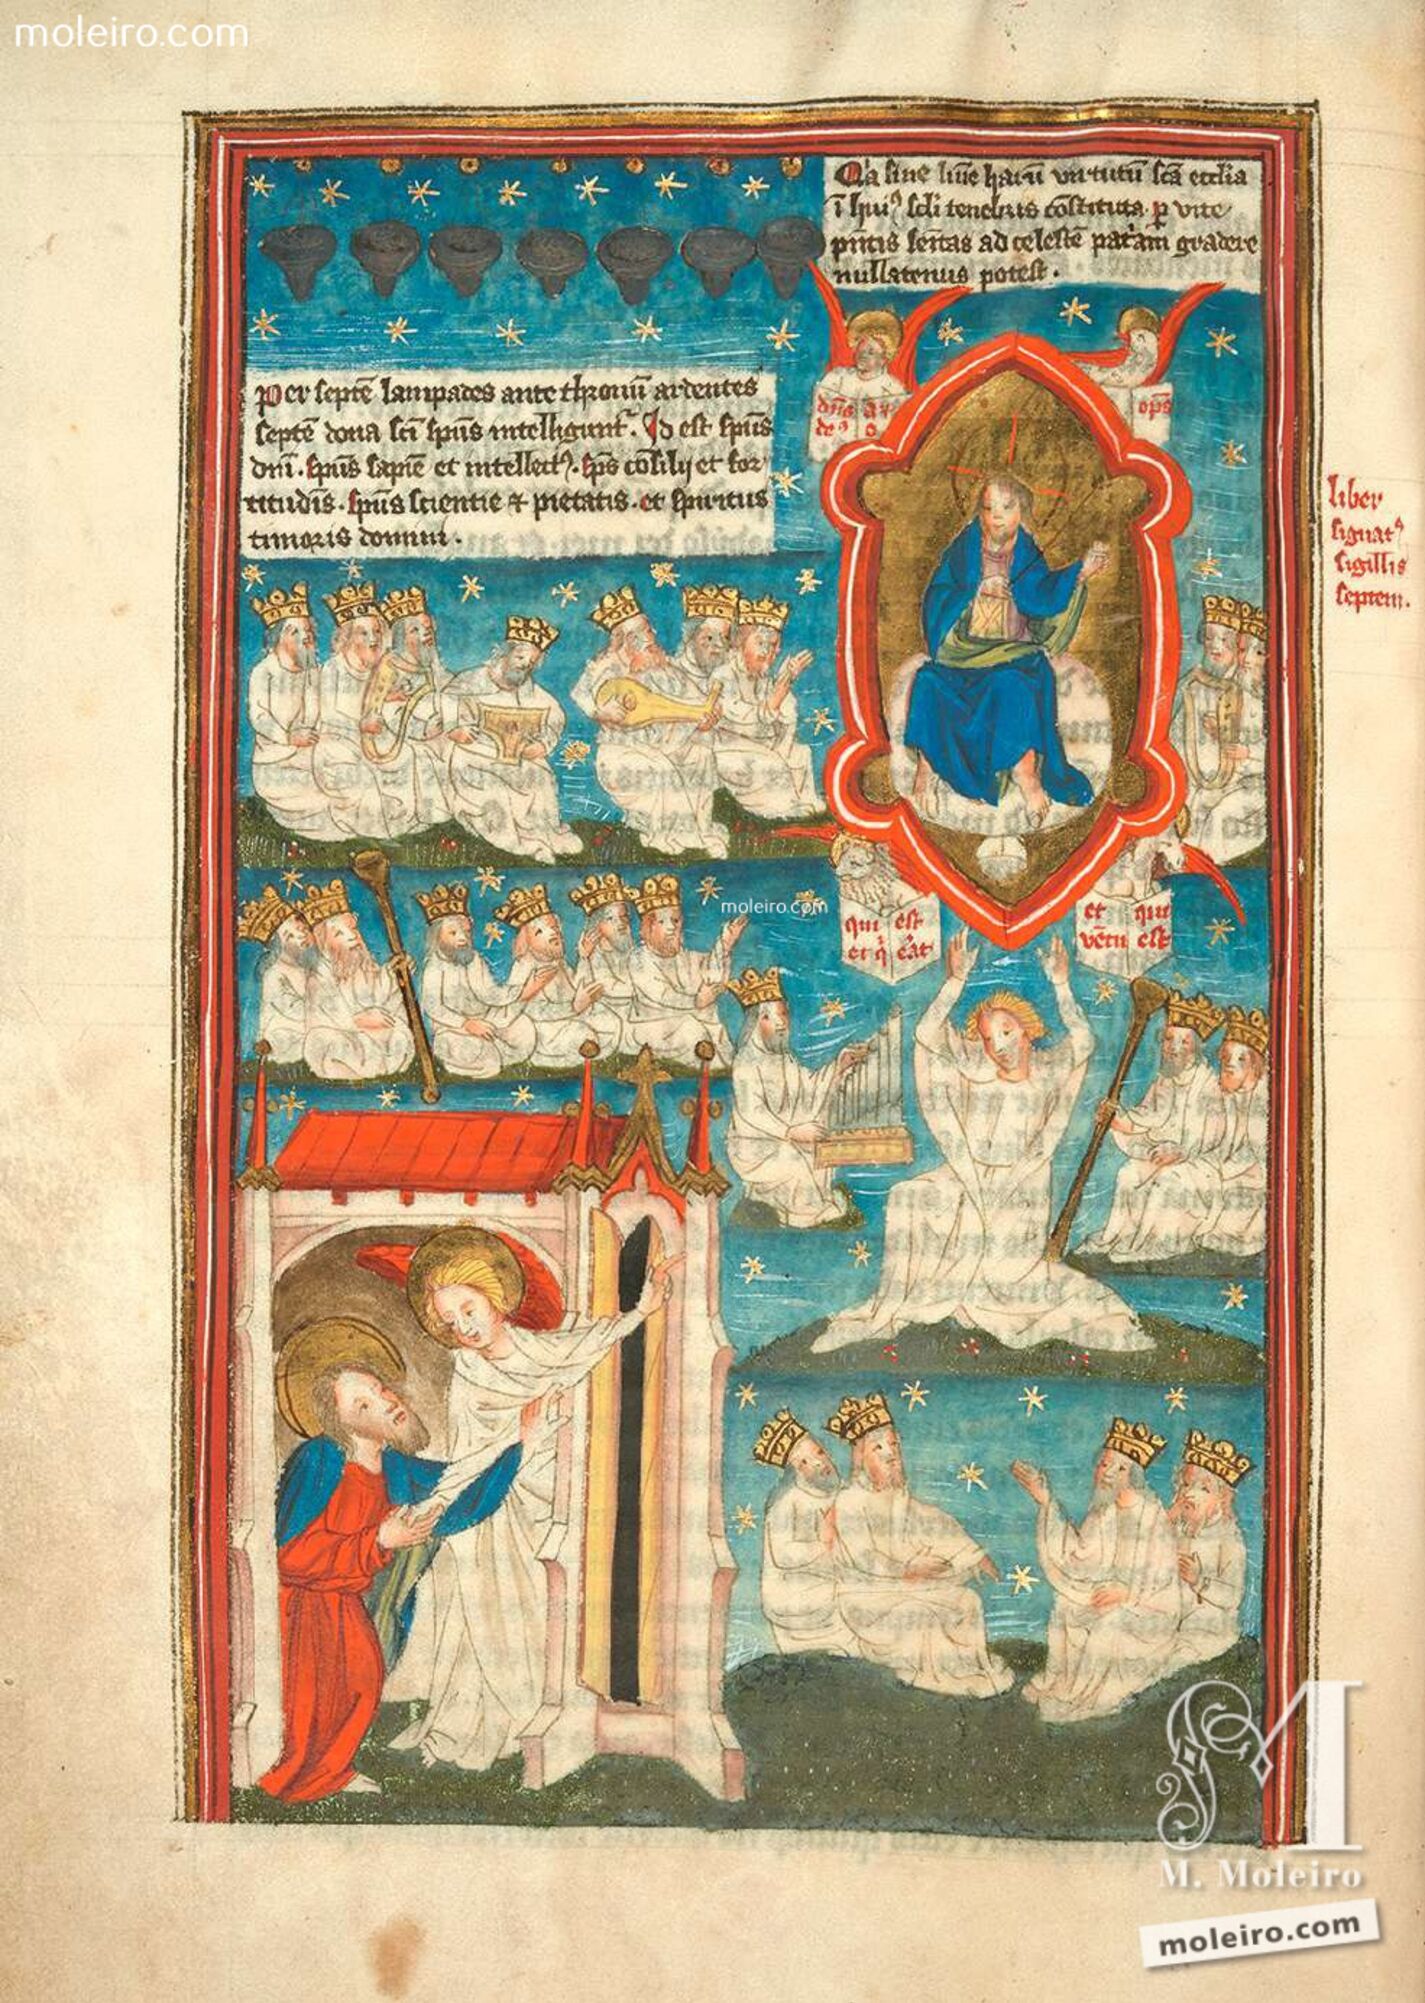 moleiro.com
Q'a sine lūīe harū virtutū scā ecclīa
ī huiꝰ scli tenebris cōstituta ꝑ vite
pn̄tis semitas ad celestē pat'am gradere
nullatenus potest.
Per septē lampades ante thronū ardentes
septē dona sc̄i sp̄us intelligunt'. Id est sp̄us
dn̄i. sp̄us sapiē et intellectꝰ. sp̄s cōsilij et for
titudīs. sp̄us scientie ⁊ pietatis. et spiritus
timoris domini.
dn̄s
deꝰ
op̄s
liber
signatꝰ
sigillis
septem.
moleiro.com
qui est
et q' erat
et qui
vētu est
M. Moleiro
moleiro.com